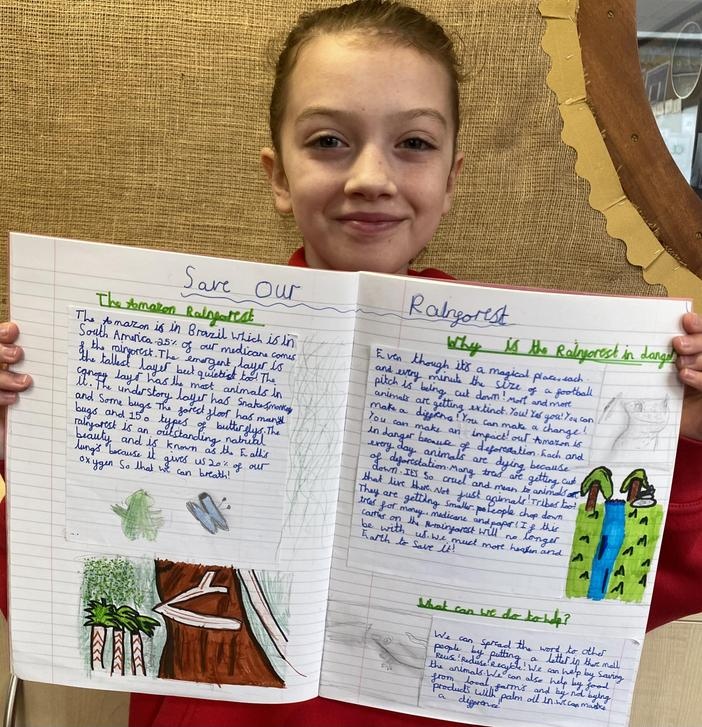 Save Our
Rainforest
The Amazon Rainforest
The Amazon is in Brazil which is in
South America. 25% of our medicane comes
of the rainforest. The emergent layer is
the tallest layer but quietist too! The
canopy layer has the most animals in
it. The understory layer has snakes, monkeys
and some bugs. The forest floor has many
bugs and 15 types of butterflys. The
rainforest is an outstanding natural
beauty and is known as the Eath's
lungs because it gives us 20% of our
oxygen So that we can breath!
Why is the Rainforest in danger
Even though it's a magical place, each
and every minute the size of a football
pitch is being cut down! More and more
animals are getting extinct. You! Yes you! You can
make a differnce! You can make a change!
You can make an impact! Our Amazon is
in danger because of deforestation. Each and
every day animals are dying because
of deforestation. Many trees are getting cut
down. It's So cruel and mean to animals
that live there. Not just animals! Tribes too!
They are getting smaller. People chop down
trees for money, medicane and paper! If this
carries on the rainforest will no longer
be with us. We must move heaven and
Earth to Save it!
What can we do to help?
We can spread the word to other
people by putting a letter in there mail
Reuse! Reduse! Recycle! We can help by saving
the animals. We can also help by food
from local farms and by not bying
products with palm oil in. we can make
a difference!